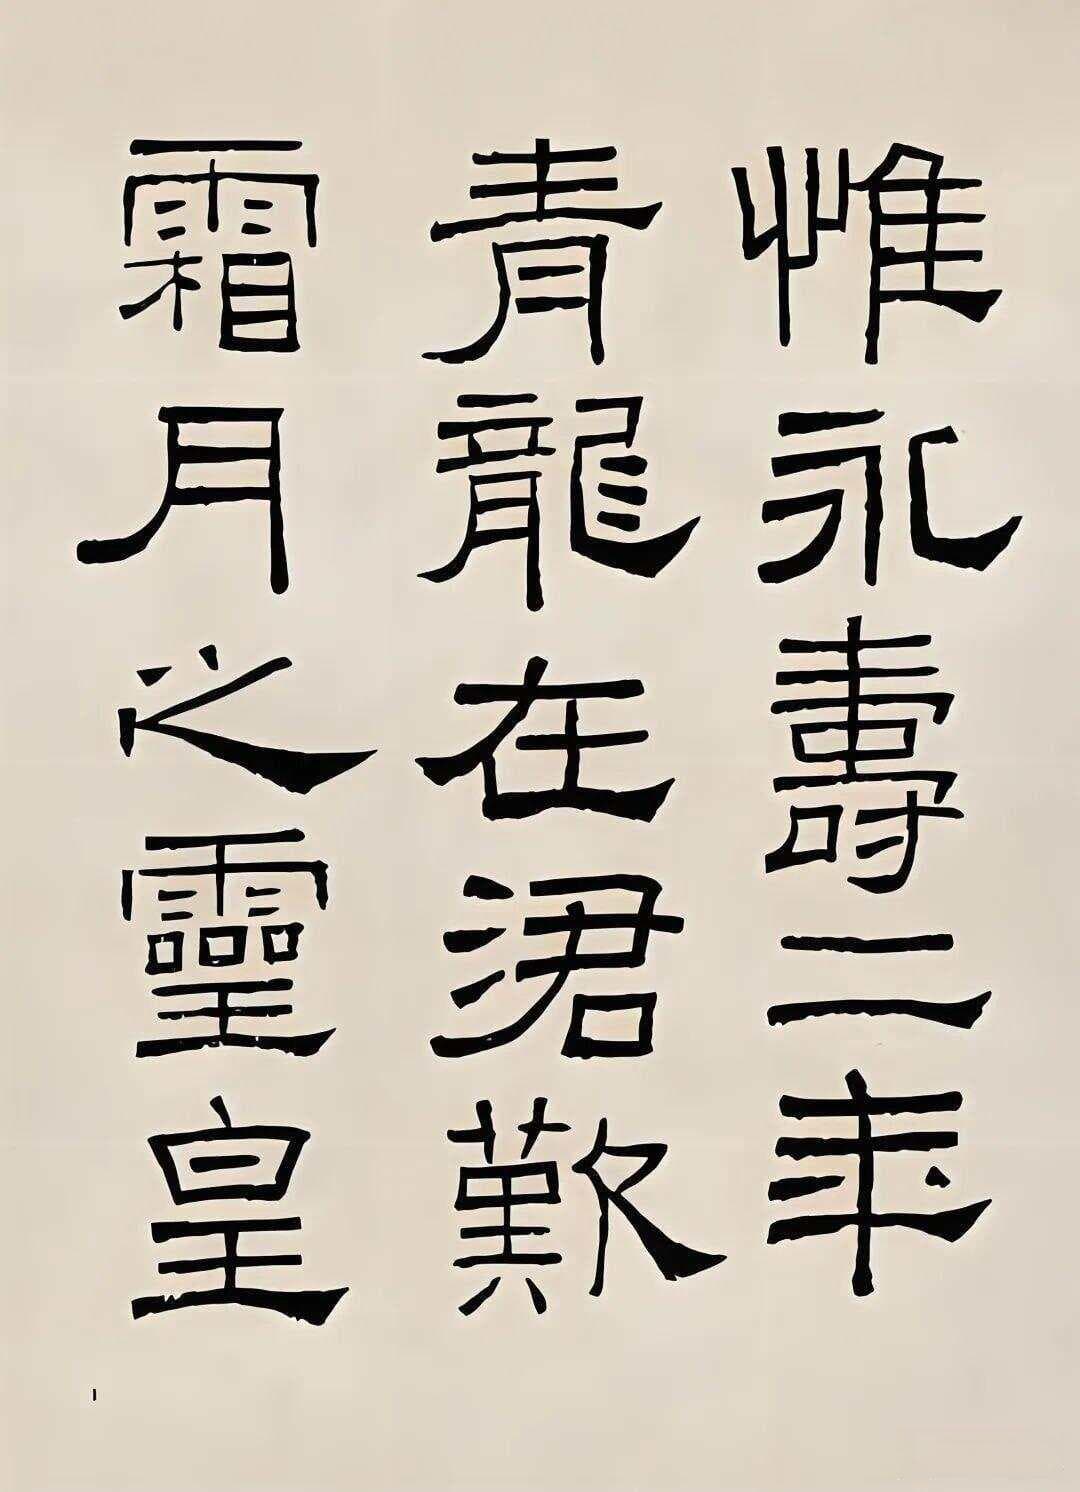 惟永壽二年
青龍在涒歎
霜月之靈皇
1